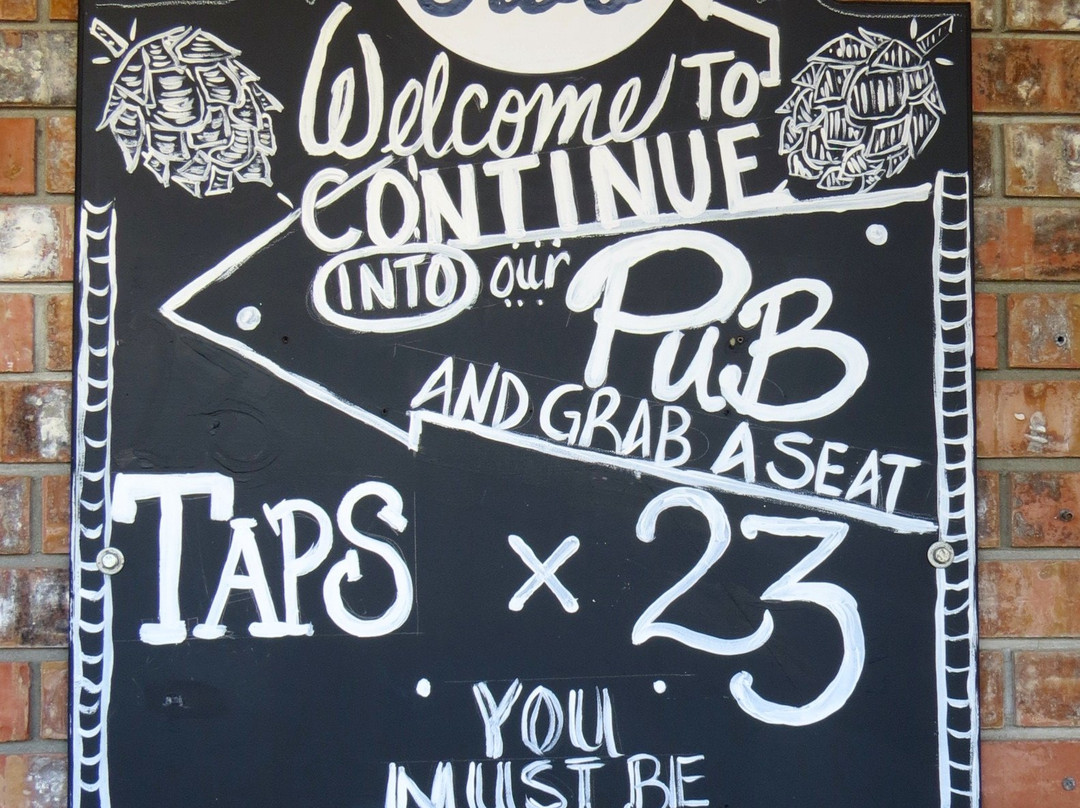 Welcome TO
CONTINUE
INTO our PuB
AND GRAB A SEAT
TAPS x 23
YOU
MUST BE